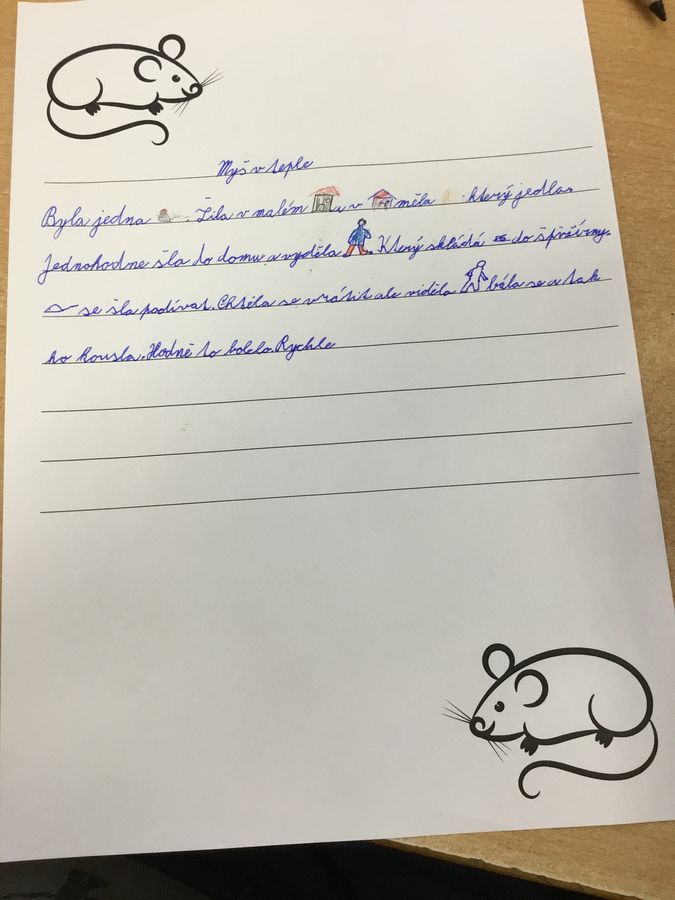 Myš v teple
Byla jedna . Žila v malém a v měla který jedla.
Jednohodne šla do domu a vyděla . Který skládá do špižírny.
se šla podívat. Chtěla se vrátit ale viděla bála se a tak
ho kousla. Hodně to bolelo. Rychle